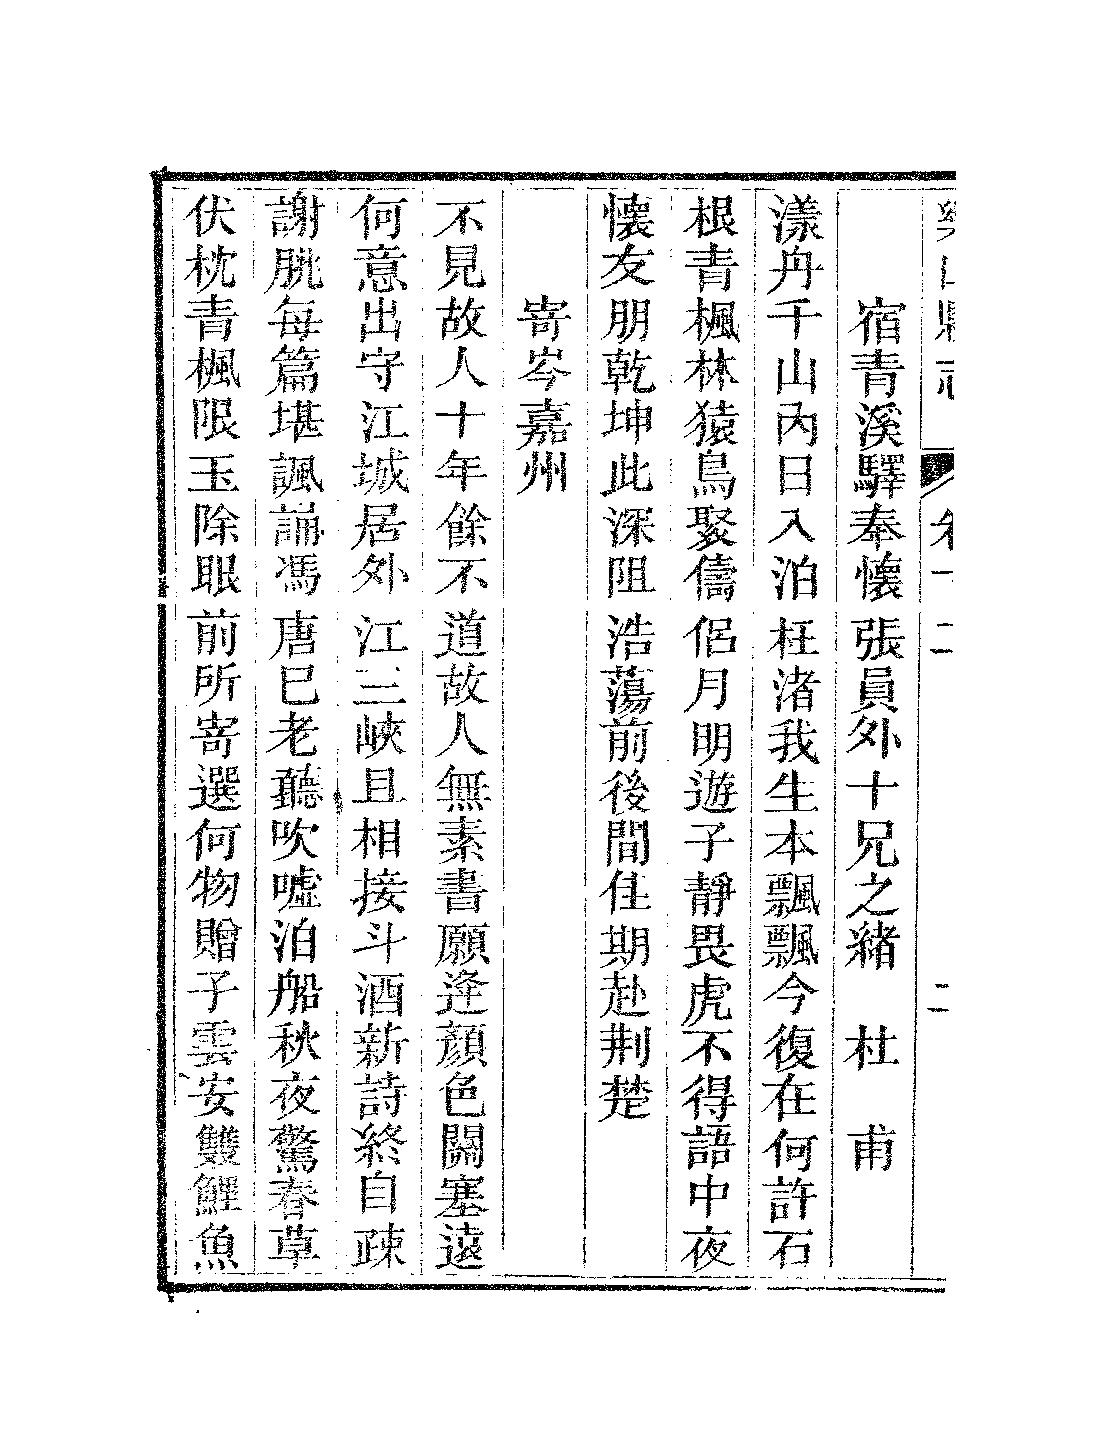 樂山縣志 卷
宿青溪驛奉懷張員外十兄之緒 杜 甫
漾舟千山內日入泊枉渚我生本飄飄今復在何許石
根青楓林猿鳥聚儔侶月明遊子靜畏虎不得語中夜
懷友朋乾坤此深阻浩蕩前後間佳期赴荆楚
寄岑嘉州
不見故人十年餘不道故人無素書願逢顏色關塞遠
何意出守江城居外江三峽且相接斗酒新詩終自疎
謝朓每篇堪諷誦馮唐已老聽吹噓泊船秋夜驚春草
伏枕青楓限玉除眼前所寄選何物贈子雲安雙鯉魚